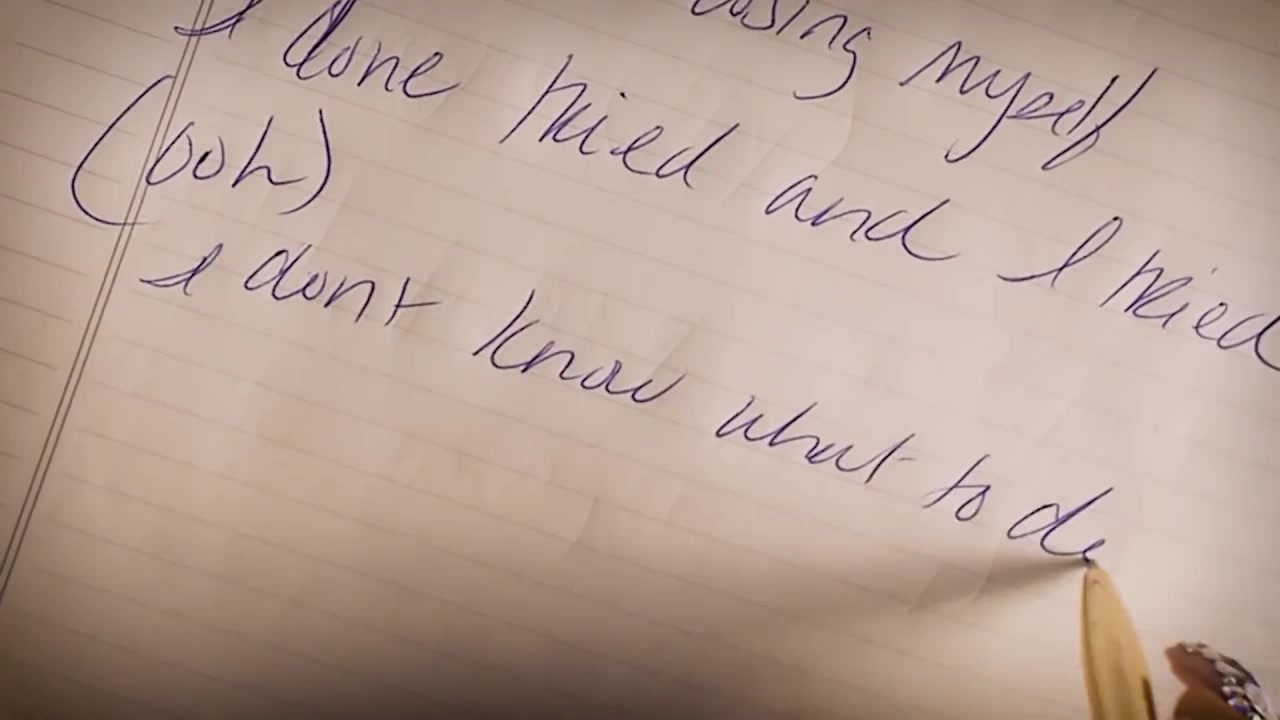 losing myself
I done tried and I tried
(ooh)
I dont know what to do